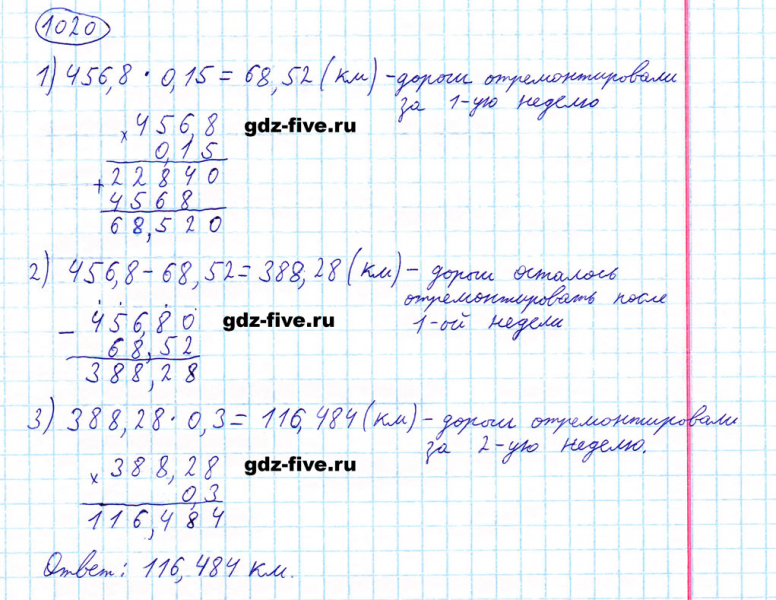 1020
1) 456,8 · 0,15 = 68,52 (км) - дороги отремонтировали
за 1-ую неделю
× 456,8
0,15
gdz-five.ru
+ 22840
4568
68,520
2) 456,8 - 68,52 = 388,28 (км) - дороги осталось
отремонтировать после
1-ой недели
- 456,80
68,52
gdz-five.ru
388,28
3) 388,28 · 0,3 = 116,484 (км) - дороги отремонтировали
за 2-ую неделю.
× 388,28
0,3
gdz-five.ru
116,484
Ответ: 116,484 км.